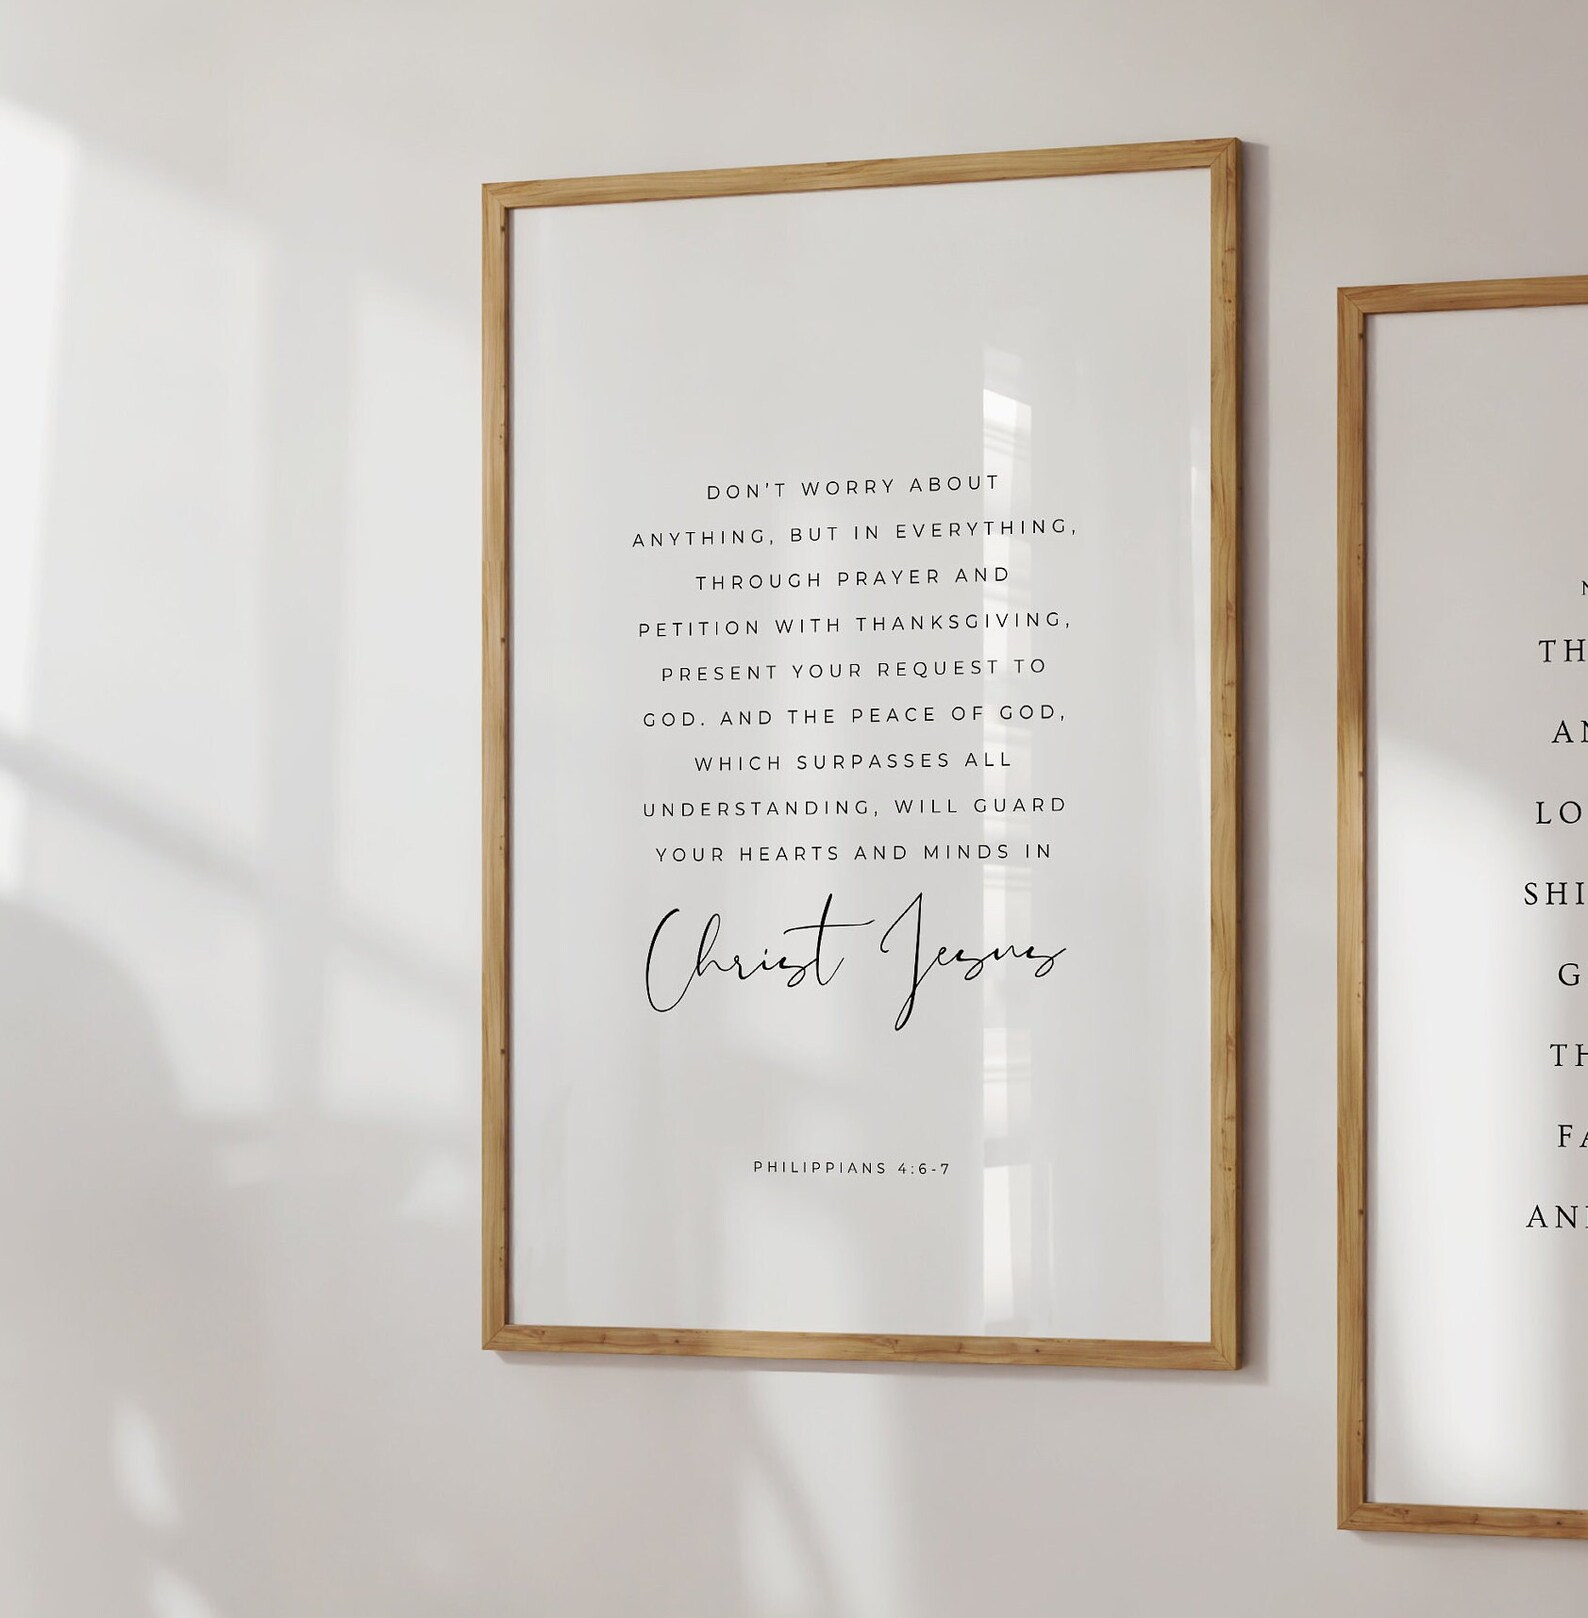 DON'T WORRY ABOUT
ANYTHING, BUT IN EVERYTHING,
THROUGH PRAYER AND
PETITION WITH THANKSGIVING,
PRESENT YOUR REQUEST TO
GOD. AND THE PEACE OF GOD,
WHICH SURPASSES ALL
UNDERSTANDING, WILL GUARD
YOUR HEARTS AND MINDS IN
Christ Jesus
PHILIPPIANS 4:6-7